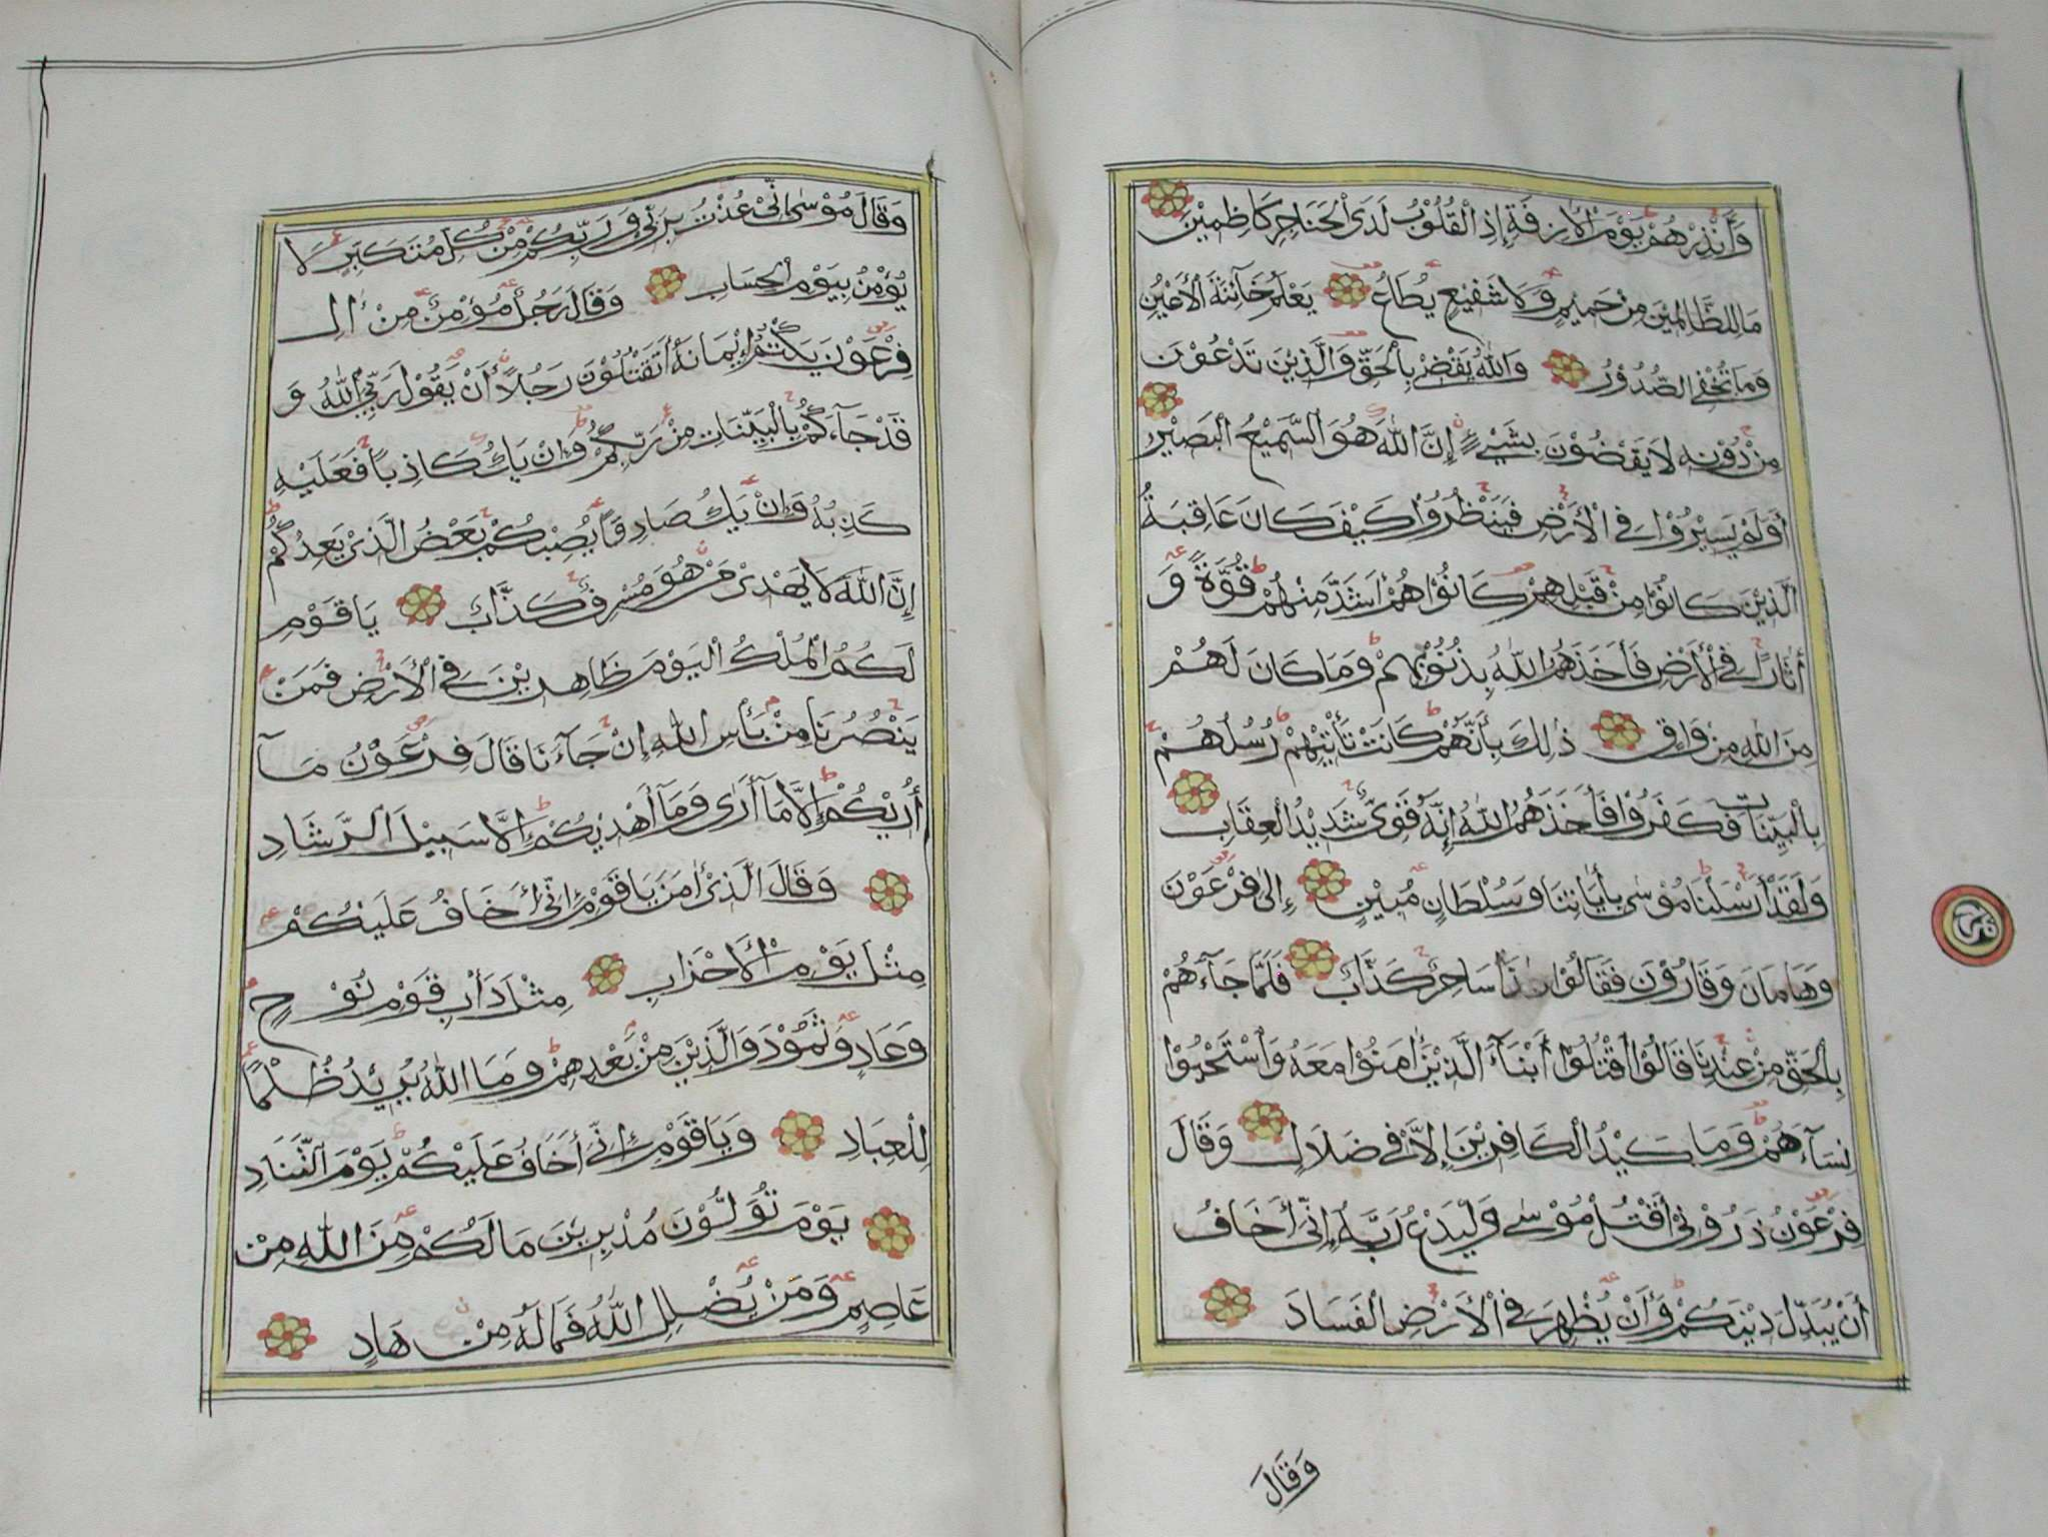 وَأَنْذِرْهُمْ يَوْمَ الْأٰزِفَةِ إِذِ الْقُلُوْبُ لَدَى الْحَنَاجِرِ كَاظِمِيْنَ
مَا لِلظَّالِمِيْنَ مِنْ حَمِيْمٍ وَّلَا شَفِيْعٍ يُطَاعُ يَعْلَمُ خَآئِنَةَ الْأَعْيُنِ
وَمَا تُخْفِى الصُّدُوْرُ وَاللّٰهُ يَقْضِىْ بِالْحَقِّ وَالَّذِيْنَ تَدْعُوْنَ
مِنْ دُوْنِهٖ لَا يَقْضُوْنَ بِشَيْءٍ إِنَّ اللّٰهَ هُوَ السَّمِيْعُ الْبَصِيْرُ
أَوَلَمْ يَسِيْرُوْا فِى الْأَرْضِ فَيَنْظُرُوْا كَيْفَ كَانَ عَاقِبَةُ
الَّذِيْنَ كَانُوْا مِنْ قَبْلِهِمْ كَانُوْا هُمْ أَشَدَّ مِنْهُمْ قُوَّةً وَّ
أٰثَارًا فِى الْأَرْضِ فَأَخَذَهُمُ اللّٰهُ بِذُنُوْبِهِمْ وَمَا كَانَ لَهُمْ
مِنَ اللّٰهِ مِنْ وَّاقٍ ذٰلِكَ بِأَنَّهُمْ كَانَتْ تَأْتِيْهِمْ رُسُلُهُمْ
بِالْبَيِّنَاتِ فَكَفَرُوْا فَأَخَذَهُمُ اللّٰهُ إِنَّهٗ قَوِىٌّ شَدِيْدُ الْعِقَابِ
وَلَقَدْ أَرْسَلْنَا مُوْسٰى بِأٰيَاتِنَا وَسُلْطَانٍ مُّبِيْنٍ إِلٰى فِرْعَوْنَ
وَهَامَانَ وَقَارُوْنَ فَقَالُوْا سَاحِرٌ كَذَّابٌ فَلَمَّا جَآءَهُمْ
بِالْحَقِّ مِنْ عِنْدِنَا قَالُوْا اقْتُلُوْا أَبْنَآءَ الَّذِيْنَ أٰمَنُوْا مَعَهٗ وَاسْتَحْيُوْا
نِسَآءَهُمْ وَمَا كَيْدُ الْكَافِرِيْنَ إِلَّا فِىْ ضَلَالٍ وَقَالَ
فِرْعَوْنُ ذَرُوْنِىْ أَقْتُلْ مُوْسٰى وَلْيَدْعُ رَبَّهٗ إِنِّىْ أَخَافُ
أَنْ يُّبَدِّلَ دِيْنَكُمْ وَأَنْ يُّظْهِرَ فِى الْأَرْضِ الْفَسَادَ
وَقَالَ
وَقَالَ مُوْسٰى إِنِّىْ عُذْتُ بِرَبِّىْ وَرَبِّكُمْ مِّنْ كُلِّ مُتَكَبِّرٍ لَّا
يُؤْمِنُ بِيَوْمِ الْحِسَابِ وَقَالَ رَجُلٌ مُّؤْمِنٌ مِّنْ أٰلِ
فِرْعَوْنَ يَكْتُمُ إِيْمَانَهٗ أَتَقْتُلُوْنَ رَجُلًا أَنْ يَّقُوْلَ رَبِّىَ اللّٰهُ وَ
قَدْ جَآءَكُمْ بِالْبَيِّنَاتِ مِنْ رَّبِّكُمْ وَإِنْ يَّكُ كَاذِبًا فَعَلَيْهِ
كَذِبُهٗ وَإِنْ يَّكُ صَادِقًا يُّصِبْكُمْ بَعْضُ الَّذِىْ يَعِدُكُمْ
إِنَّ اللّٰهَ لَا يَهْدِىْ مَنْ هُوَ مُسْرِفٌ كَذَّابٌ يَا قَوْمِ
لَكُمُ الْمُلْكُ الْيَوْمَ ظَاهِرِيْنَ فِى الْأَرْضِ فَمَنْ
يَّنْصُرُنَا مِنْ بَأْسِ اللّٰهِ إِنْ جَآءَنَا قَالَ فِرْعَوْنُ مَآ
أُرِيْكُمْ إِلَّا مَآ أَرٰى وَمَآ أَهْدِيْكُمْ إِلَّا سَبِيْلَ الرَّشَادِ
وَقَالَ الَّذِىْ أٰمَنَ يَا قَوْمِ إِنِّىْ أَخَافُ عَلَيْكُمْ
مِثْلَ يَوْمِ الْأَحْزَابِ مِثْلَ دَأْبِ قَوْمِ نُوْحٍ
وَّعَادٍ وَّثَمُوْدَ وَالَّذِيْنَ مِنْ بَعْدِهِمْ وَمَا اللّٰهُ يُرِيْدُ ظُلْمًا
لِلْعِبَادِ وَيَا قَوْمِ إِنِّىْ أَخَافُ عَلَيْكُمْ يَوْمَ التَّنَادِ
يَوْمَ تُوَلُّوْنَ مُدْبِرِيْنَ مَا لَكُمْ مِّنَ اللّٰهِ مِنْ
عَاصِمٍ وَّمَنْ يُّضْلِلِ اللّٰهُ فَمَا لَهٗ مِنْ هَادٍ